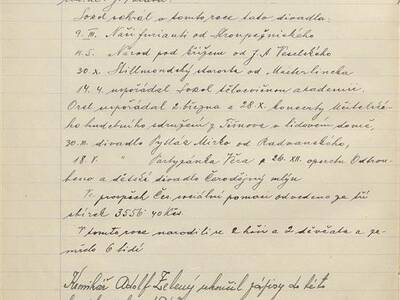 Sokol sehrál v tomto roce tato divadla:
9. III. Naši furianti od Stroupežnického
11.5. Národ pod křížem od J. A. Veselského
30.X. Stillmondský starosta od Maeterlincka
14.4. uspořádal Sokol tělocvičnou akademii.
Orel uspořádal 2. března a 28.X. koncerty Uměleckého
hudebního sdružení z Tišnova v lidovém domě,
30.III. divadlo Pytlák Mirko od Radvanského,
18.V. " Partyzánka Věra a 26.XII. operetu
a dětské divadlo Čarodějný mlýn
Ve prospěch Čes. sociální pomoci odvedeno ze tří
sbírek 3556.40 Kčs.
V tomto roce narodili se 2 hoši a 2 děvčata a ze-
mřelo 6 lidí
Kronikář Adolf Zelený ukončil zápisy do této